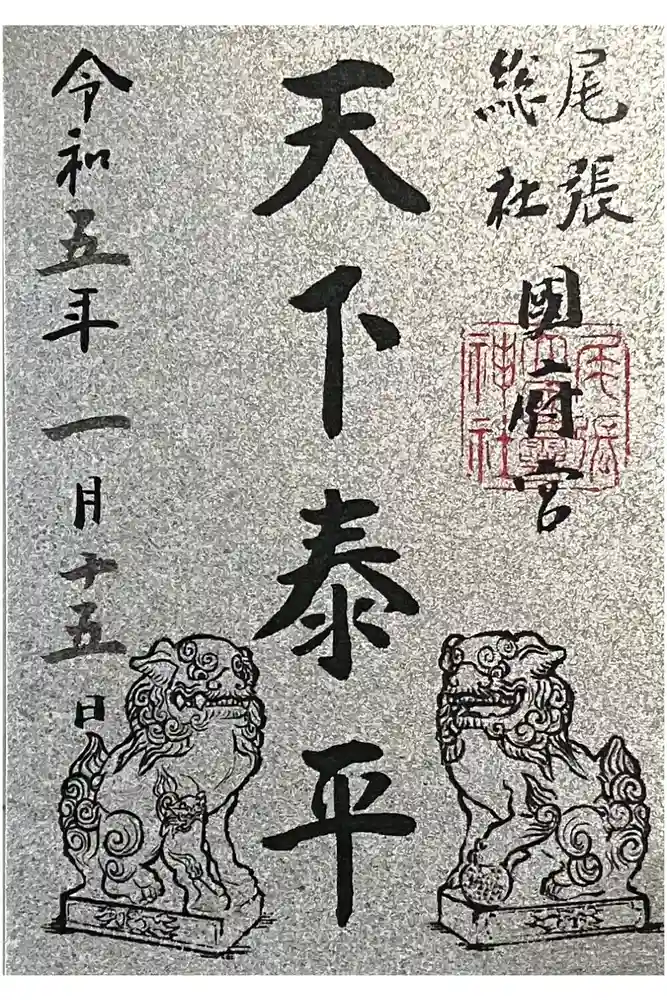 尾張
総社
國府宮
尾張
大國霊
神社
天下泰平
令和五年一月十五日